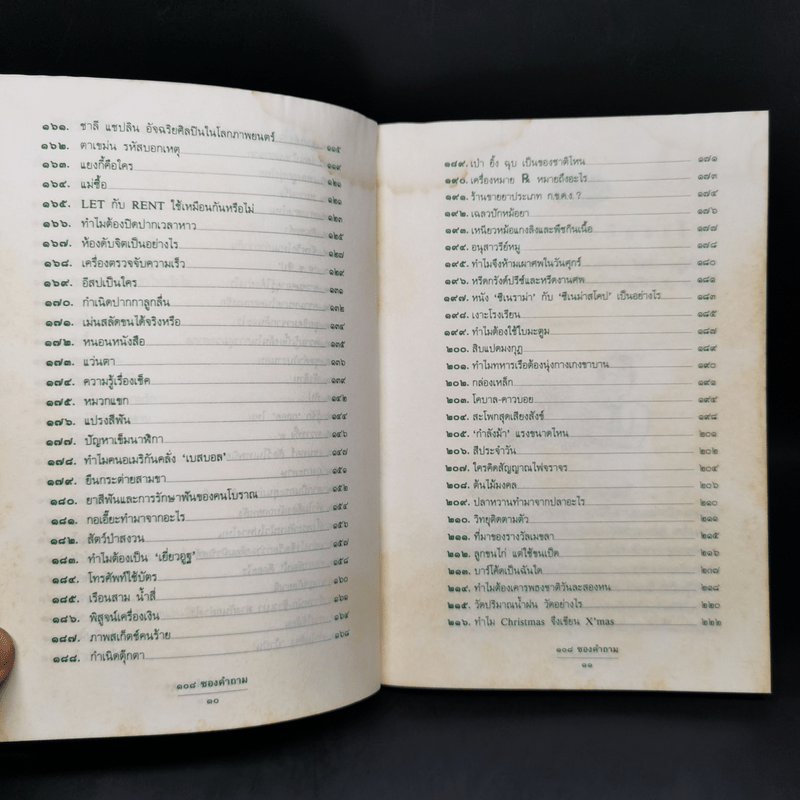 ๑๖๑. ชาลี แชปลิน อัจฉริยศิลปินในโลกภาพยนตร์ ๑๑๕
๑๖๒. ตาเขม่น รหัสบอกเหตุ ๑๑๙
๑๖๓. แยงกี้คือใคร ๑๒๑
๑๖๔. แม่ซื้อ ๑๒๑
๑๖๕. LET กับ RENT ใช้เหมือนกันหรือไม่ ๑๒๓
๑๖๖. ทำไมต้องปิดปากเวลาหาว ๑๒๕
๑๖๗. ห้องดับจิตเป็นอย่างไร ๑๒๗
๑๖๘. เครื่องตรวจจับความเร็ว ๑๒๙
๑๖๙. อีสปเป็นใคร ๑๓๑
๑๗๐. กำเนิดปากกาลูกลื่น ๑๓๒
๑๗๑. เม่นสลัดขนได้จริงหรือ ๑๓๔
๑๗๒. หนอนหนังสือ ๑๓๕
๑๗๓. แว่นตา ๑๓๖
๑๗๔. ความรู้เรื่องเช็ค ๑๓๙
๑๗๕. หมวกแขก ๑๔๒
๑๗๖. แปรงสีฟัน ๑๔๔
๑๗๗. ปัญหาเข็มนาฬิกา ๑๔๖
๑๗๘. ทำไมคนอเมริกันคลั่ง 'เบสบอล' ๑๔๗
๑๗๙. ยืนกระต่ายสามขา ๑๕๑
๑๘๐. ยาสีฟันและการรักษาฟันของคนโบราณ ๑๕๒
๑๘๑. กอเอี๊ยะทำมาจากอะไร ๑๕๖
๑๘๒. สัตว์ป่าสงวน ๑๕๗
๑๘๓. ทำไมต้องเป็น 'เยี่ยวอูฐ' ๑๕๘
๑๘๔. โทรศัพท์ใช้บัตร ๑๖๐
๑๘๕. เรือนสาม น้ำสี่ ๑๖๑
๑๘๖. พิสูจน์เครื่องเงิน ๑๖๔
๑๘๗. ภาพสเก็ตช์คนร้าย ๑๖๘
๑๘๘. กำเนิดตุ๊กตา
๑๐๘ ซองคำถาม
๑๐
๑๘๙. เป่า ยิ้ง ฉุบ เป็นของชาติไหน ๑๗๑
๑๙๐. เครื่องหมาย ℞ หมายถึงอะไร ๑๗๓
๑๙๑. ร้านขายยาประเภท ก.ข.ค.ง. ? ๑๗๔
๑๙๒. เฉลวปักหม้อยา ๑๗๖
๑๙๓. เหนียวหม้อแกงลิงและพืชกินเนื้อ ๑๗๗
๑๙๔. อนุสาวรีย์หมู ๑๗๘
๑๙๕. ทำไมจึงห้ามเผาศพในวันศุกร์ ๑๘๐
๑๙๖. หรีดกรังด์ปรีซ์และหรีดงานศพ ๑๘๑
๑๙๗. หนัง 'ซีเนราม่า' กับ 'ซีเนม่าสโคป' เป็นอย่างไร ๑๘๓
๑๙๘. เงาะโรงเรียน ๑๘๕
๑๙๙. ทำไมต้องใช้ใบมะตูม ๑๘๗
๒๐๐. สิบแปดมงกุฎ ๑๘๙
๒๐๑. ทำไมทหารเรือต้องนุ่งกางเกงขาบาน ๑๙๐
๒๐๒. กล่องเหล็ก ๑๙๑
๒๐๓. โคบาล-คาวบอย ๑๙๔
๒๐๔. สะโพกสุดเสียงสังข์ ๑๙๘
๒๐๕. 'กำลังม้า' แรงขนาดไหน ๒๐๑
๒๐๖. สีประจำวัน ๒๐๒
๒๐๗. ใครคิดสัญญาณไฟจราจร ๒๐๔
๒๐๘. ต้นไม้มงคล ๒๐๖
๒๐๙. ปลาหวานทำมาจากปลาอะไร ๒๑๐
๒๑๐. วิทยุติดตามตัว ๒๑๑
๒๑๑. ที่มาของรางวัลเมขลา ๒๑๕
๒๑๒. ลูกขนไก่ แต่ใช้ขนเป็ด ๒๑๖
๒๑๓. บาร์โค้ดเป็นฉันใด ๒๑๗
๒๑๔. ทำไมต้องเคารพธงชาติวันละสองหน ๒๑๘
๒๑๕. วัดปริมาณน้ำฝน วัดอย่างไร ๒๒๐
๒๑๖. ทำไม Christmas จึงเขียน X'mas ๒๒๒
๑๐๘ ซองคำถาม
๑๑